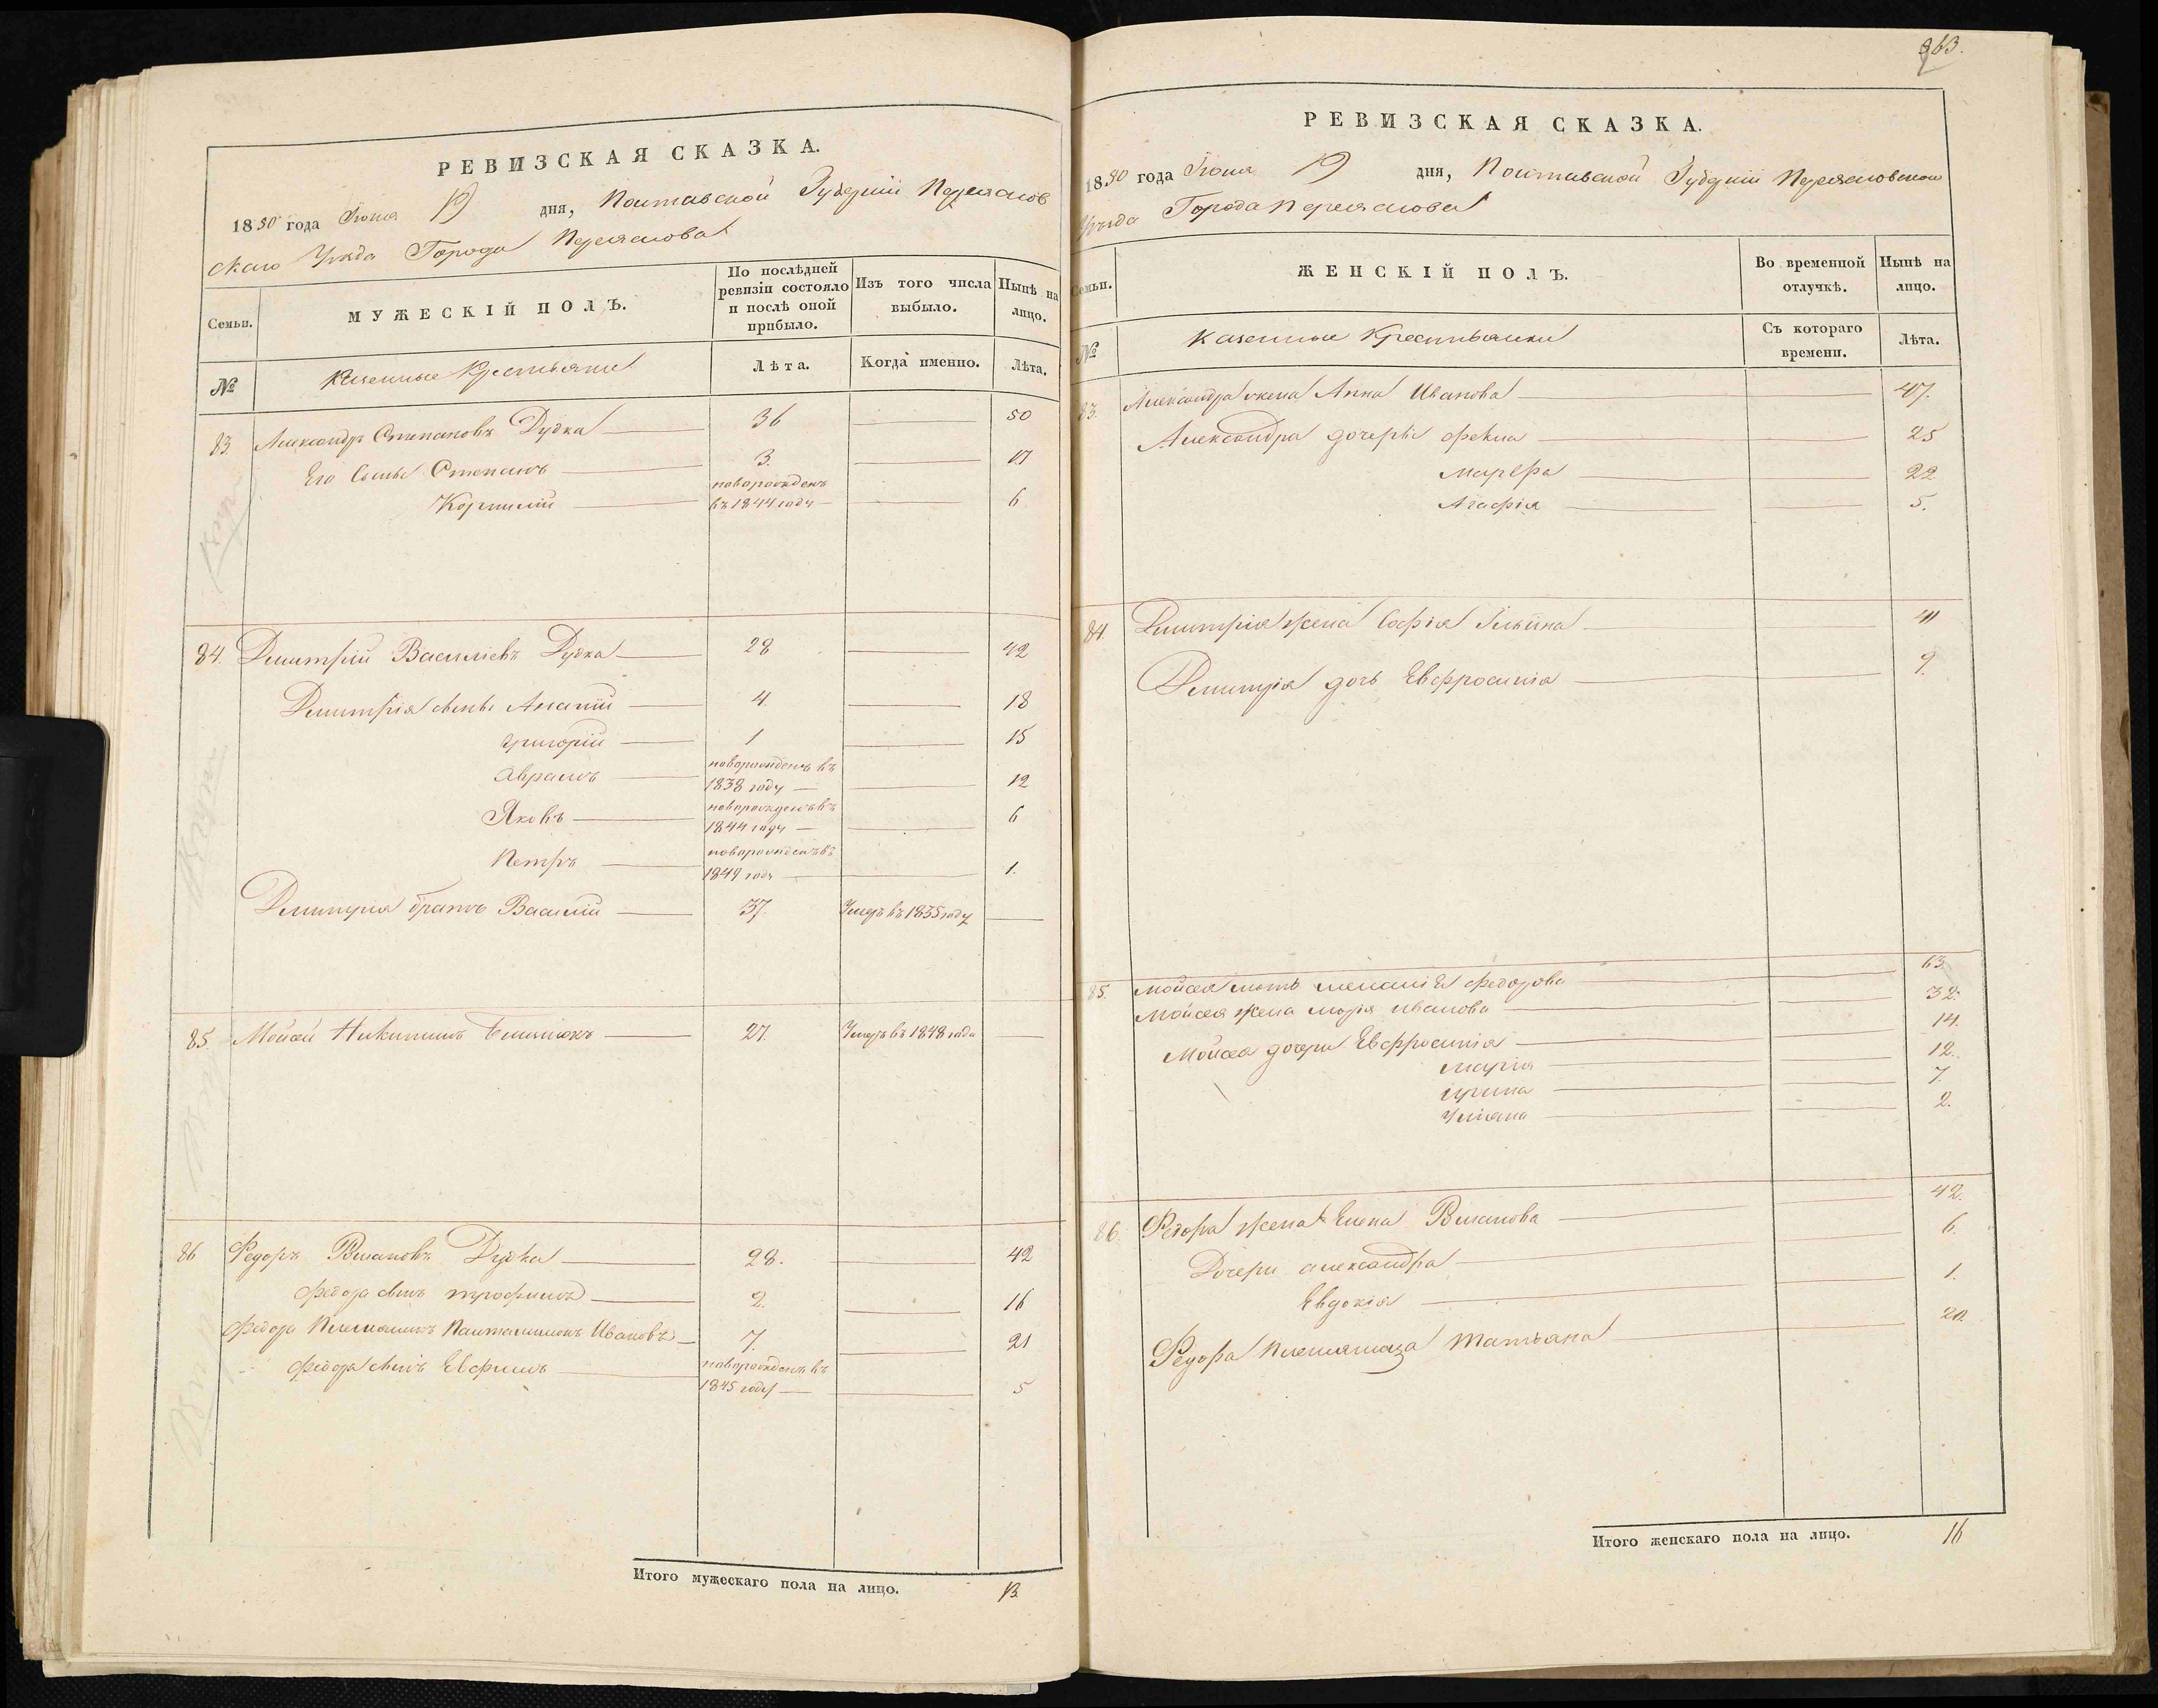 РЕВИЗСКАЯ СКАЗКА.
1850 года Іюня 19 дня, Полтавской Губерніи Переяслов
скаго Уѣзда Города Переяслова
Семьи.
МУЖЕСКІЙ ПОЛЪ.
По послѣдней ревизіи состояло и послѣ оной прибыло.
Изъ того числа выбыло.
Нынѣ на лицо.
№
Казенные Крестьяне
Лѣта.
Когда именно.
Лѣта.
83. Александръ Степановъ Дудка 36 50
Его Сыны Степанъ 3. 17
Корнилій новорожденъ въ 1844 году 6
84. Димитрій Василіевъ Дудка 28 42
Димитрія сыны Ананій 4. 18
Григорій 1 15
Аврамъ новорожденъ въ 1838 году 12
Яковъ новорожденъ въ 1844 году 6
Петръ новорожденъ въ 1849 году 1.
Димитрія братъ Василій 37. Умеръ въ 1835 году
85. Мойсей Никитинъ 27. Умеръ въ 1848 года
86 Федоръ Дудка 28. 42
Федора сынъ Трофимъ 2. 16
Федора Племянникъ Пантелимонъ Ивановъ 7. 21
Федора сынъ Евфимъ новорожденъ въ 1845 году 5
Итого мужескаго пола на лицо. 13
363.
РЕВИЗСКАЯ СКАЗКА.
1850 года Іюня 19 дня, Полтавской Губерніи Переясловскаго
Уѣзда Города Переяслова
Семьи.
ЖЕНСКІЙ ПОЛЪ.
Во временной отлучкѣ.
Нынѣ на лицо.
№
Казенные Крестьянки
Съ котораго времени.
Лѣта.
83. Александра жена Анна Иванова 47.
Александра дочери Фекла 25
Марѳа 22
Агафія 5.
84. Димитрія жена Софія Ильина 41
Димитрія дочь Евфросинія 9.
85. Мойсея мать Меланія Федорова 63
Мойсея жена Марія Иванова 32.
Мойсея дочери Евфросинія 14.
Марія 12.
Ирина 7.
Уліана 2.
86. Федора жена Елена 42.
Дочери Александра 6.
Евдокія 1.
Федора племянница Татьяна 20.
Итого женскаго пола на лицо. 16